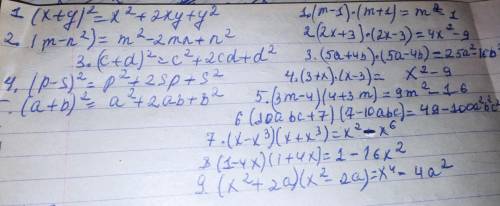 1. (x+y)²=x²+2xy+y²
2. (m-n²)=m²-2mn+n²
3. (c+d)²=c²+2cd+d²
4. (p-s)²=p²+2sp+s²
. (a+b)²=a²+2ab+b²
1. (m-1)·(m+1)=m²-1
2(2x+3)·(2x-3)=4x²-9
3. (5a+4b)·(5a-4b)=25a²-16b²
4. (3+x)·(x-3)= x²-9
5. (3m-4)(4+3m)=9m²-16
6 (10abc+7)(7-10abc)=49-100a²b²c²
7. (x-x³)(x+x³)=x²-x⁶
8 (1-4x)(1+4x)=1-16x²
9. (x²+2a)(x²-2a)=x⁴-4a²